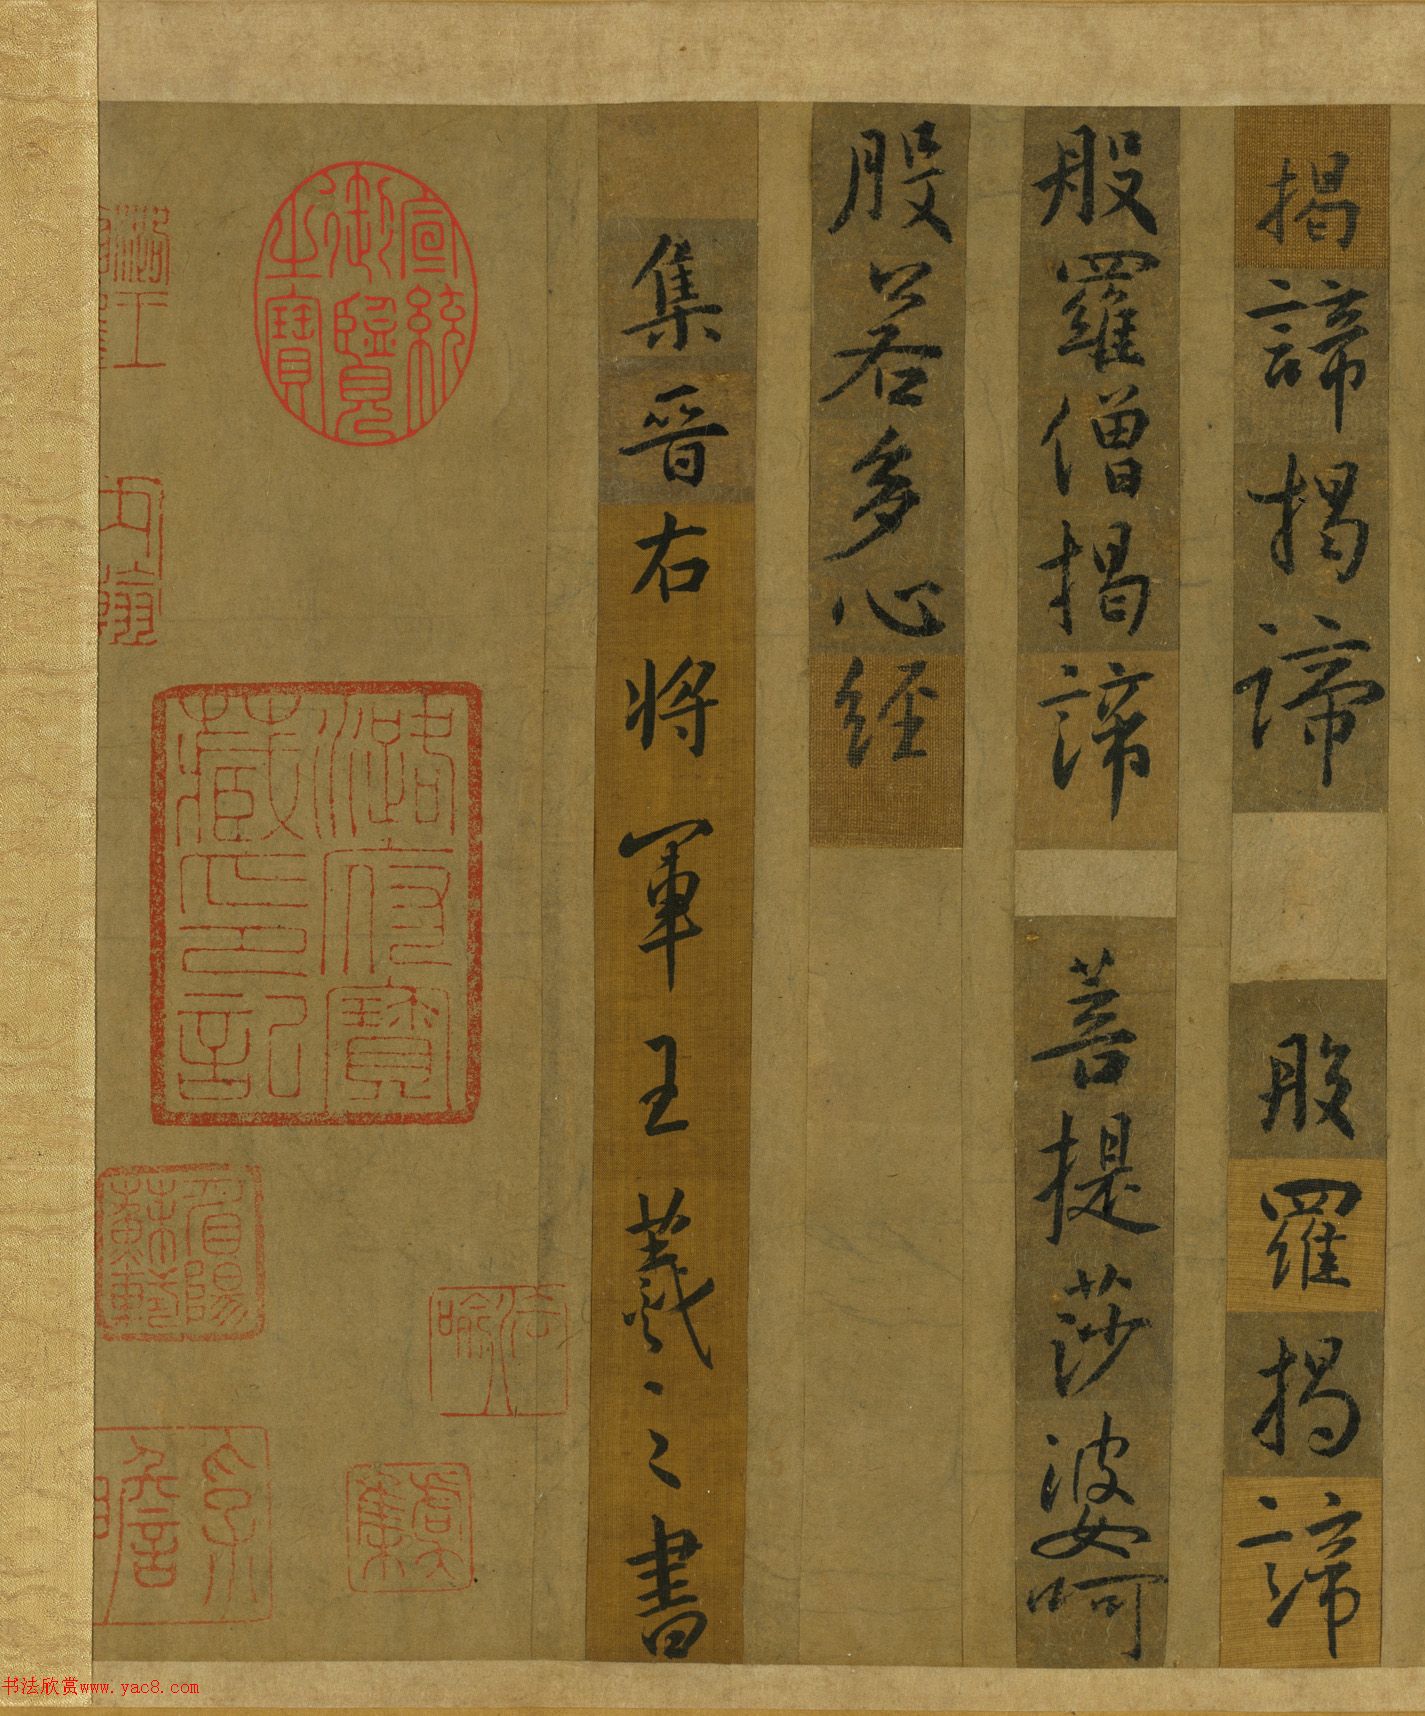 揭諦揭諦 般羅揭諦
般羅僧揭諦 菩提莎婆呵
般若多心經
集晉右將軍王羲之書
宣統御覽之寶
潞府寶藏之記
眉陽蘇軾
书法欣赏www.yac8.com